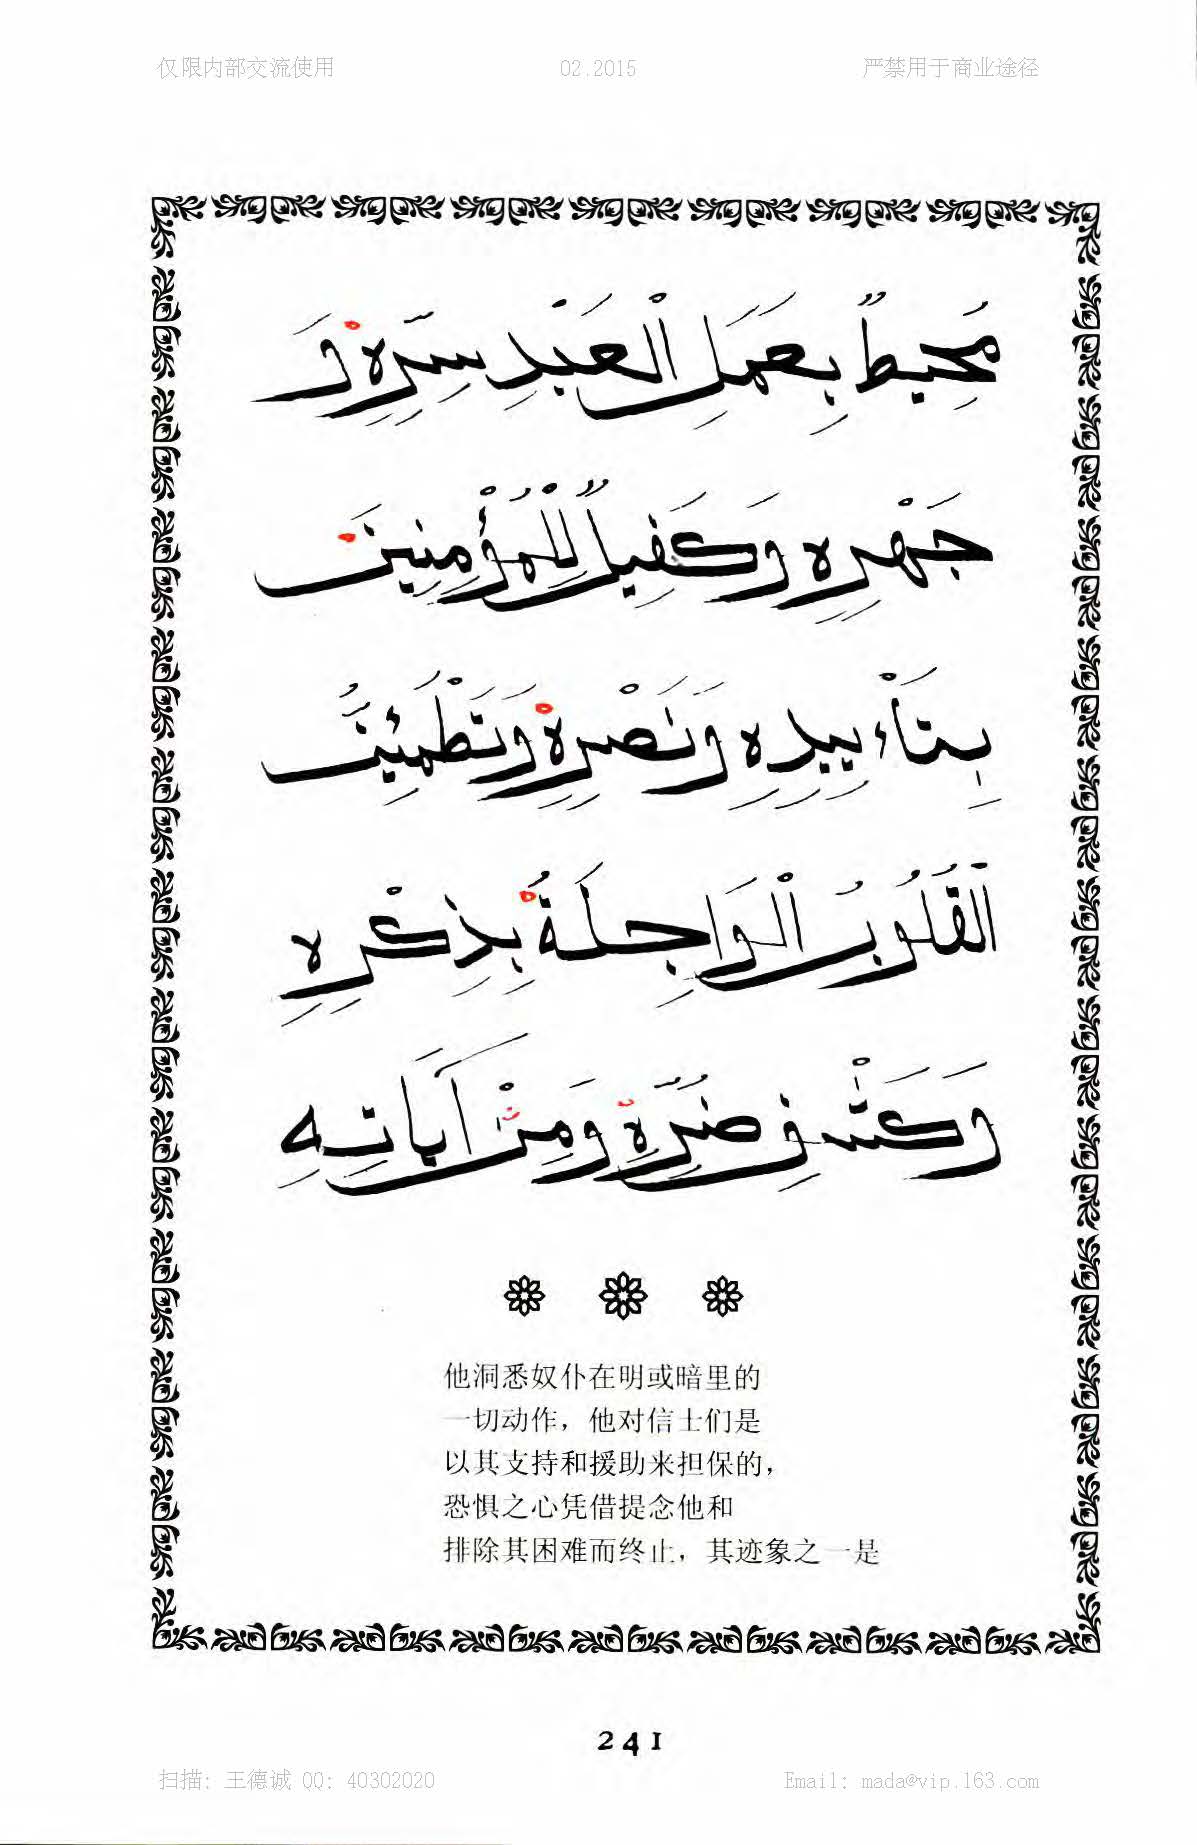 仅限内部交流使用 02.2015 严禁用于商业途径
مُحِيطٌ بِعَمَلِ الْعَبْدِ سِرِّهِ وَ
جَهْرِهِ وَكَفِيلٌ لِلْمُؤْمِنِينَ
بِتَأْيِيدِهِ وَنَصْرِهِ وَتَطْمَئِنُّ
الْقُلُوبُ الْوَاجِلَةُ بِذِكْرِهِ
وَكَشْفِ ضُرِّهِ وَمِنْ آيَاتِهِ
他洞悉奴仆在明或暗里的
一切动作，他对信士们是
以其支持和援助来担保的，
恐惧之心凭借提念他和
排除其困难而终止，其迹象之一是
241
扫描：王德诚 QQ：40302020 Email：mada@vip.163.com